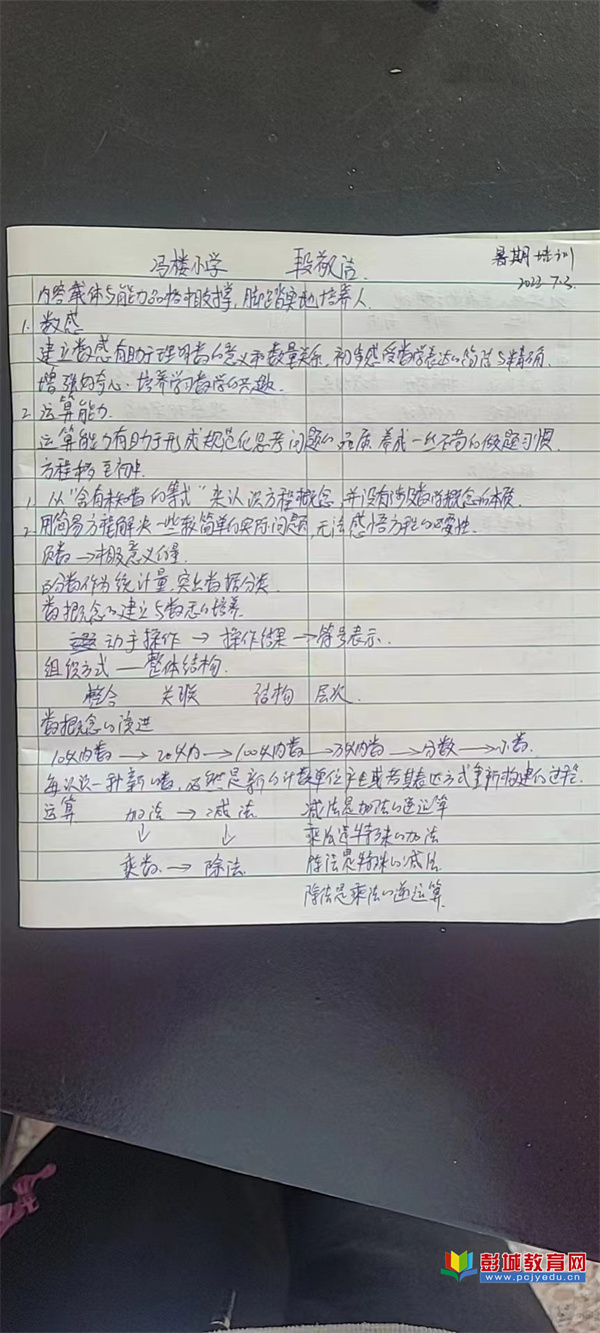 冯楼小学 段敬洁
暑期培训
2023.7.3.
内容载体与能力品格相支撑，脚踏实地培养人.
1. 数感
建立数感有助于理解数的意义和数量关系，初步感受数学表达的简洁与精确.
增强好奇心.培养学习数学的兴趣.
2. 运算能力.
运算能力有助于形成规范化思考问题的品质.养成一些不苟的做题习惯.
方程移至初中.
1. 从"含有未知数的等式"来认识方程概念，并没有涉及数学概念的本质.
2. 用简易方程解决一些较简单的实际问题，无法感悟方程的必要性.
负数→相反意义的量.
百分数作为统计量，突出数据分类.
数概念的建立与数感的培养.
动手操作 → 操作结果 → 符号表示.
组织方式——整体结构.
整合 关联 结构 层次.
数概念的演进
10以内数→20以内→100以内数→万以内数→分数→小数.
每次认一种新的数，必然是新的计数单位产生或者其表达方式重新构建的过程.
运算 加法 → 减法 减法是加法的逆运算
↓ ↓ 乘法是特殊的加法
乘法 → 除法 除法是特殊的减法.
除法是乘法的逆运算.
彭城教育网
www.pcjyedu.cn